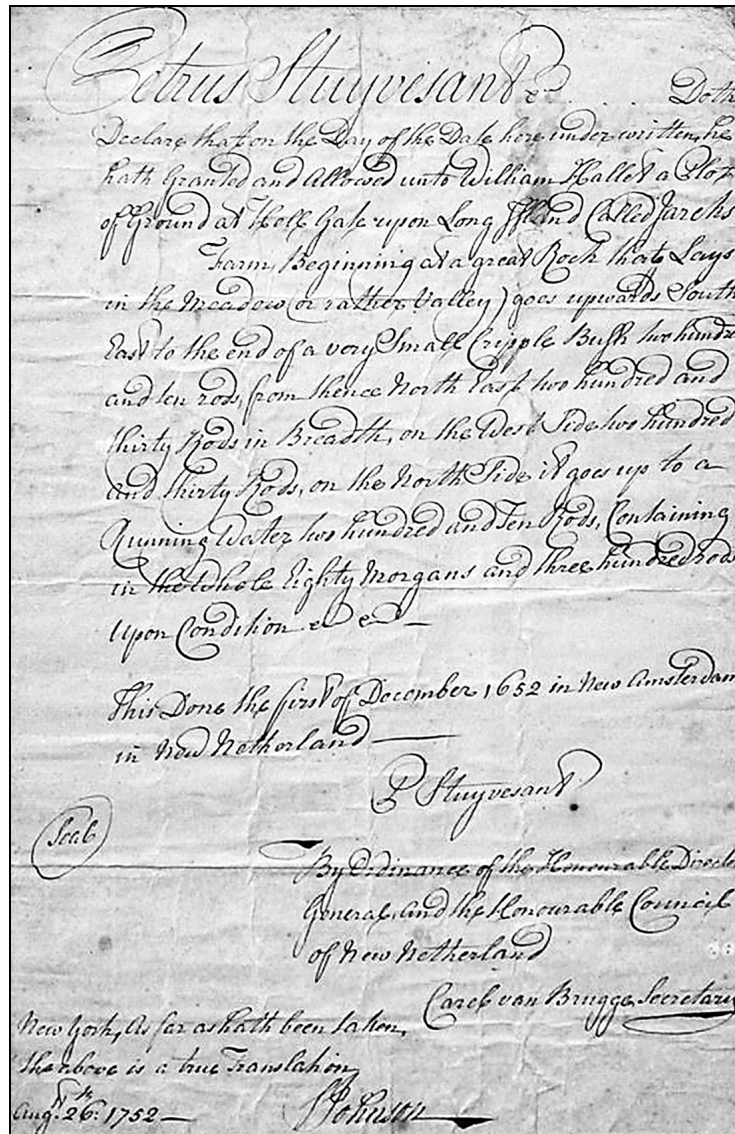 Petrus Stuyvesant &c. Doth
Declare that on the Day of the Date here under written, he
hath Granted and Allowed unto William Hallet a Plot
of Ground at Hell Gate upon Long Island Called Jarcks
Farm, Beginning at a great Rock that Lays
in the Meadow (or rather Valley) goes upwards South
East to the end of a very Small Cripple Bush two hundred
and ten rods, from thence North East two hundred and
thirty Rods in Breadth, on the West Side two hundred
and thirty Rods, on the North Side it goes up to a
Running Water two hundred and Ten Rods, Containing
in the whole Eighty Morgans and three hundred rods
Upon Condition &c &c —
This Done the first of December 1652 in New Amsterdam
in New Netherland —
P Stuyvesant
Seal
By Ordinance of the Honourable Directo
General, and the Honourable Council
of New Netherland
Carel van Brugge, Secretary
New York, As far as hath been taken,
the above is a true Translation
Augst. 26th. 1752 —
Johnson